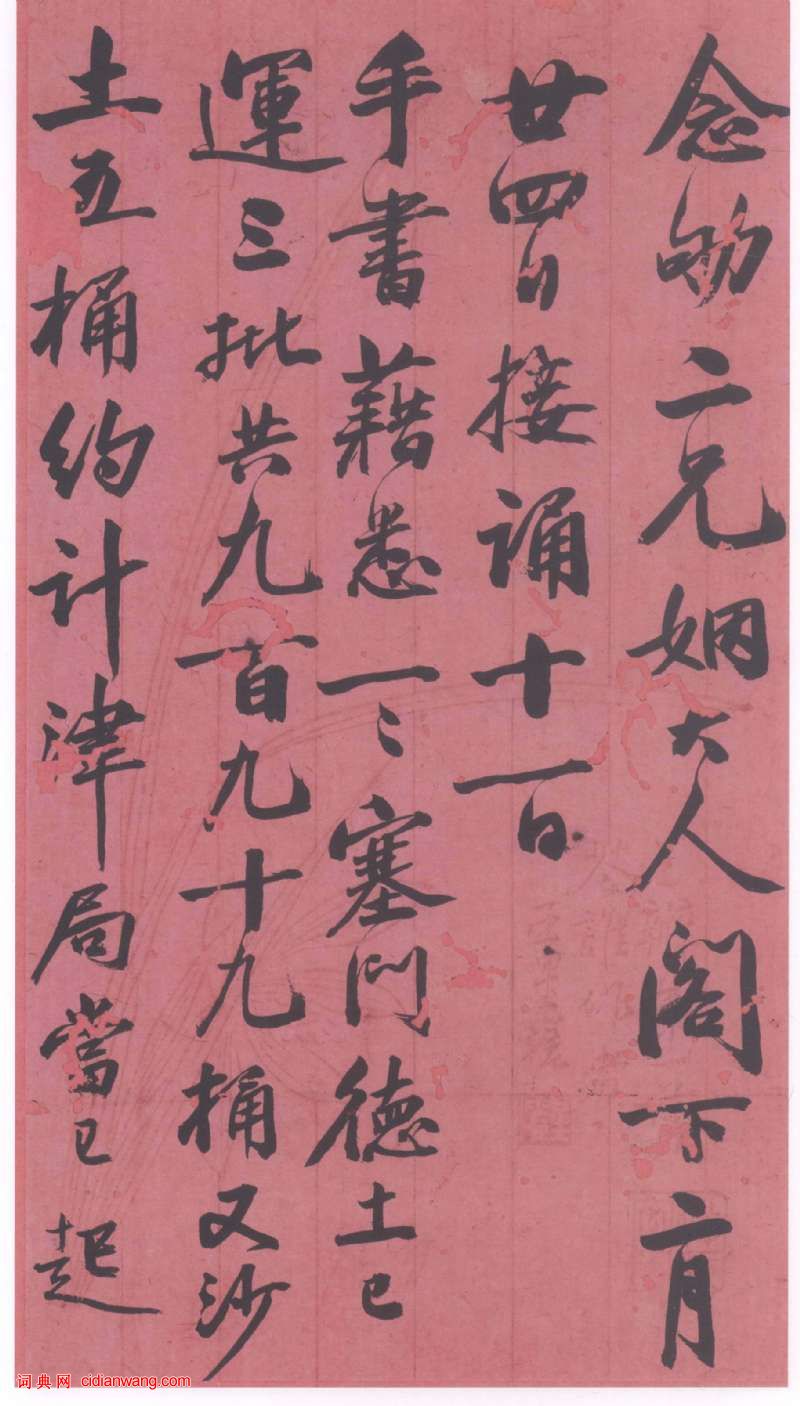 念劬二兄姻大人阁下二月
廿四日接诵十一日
手書藉悉一〻塞门德土已
運三批共九百九十九桶又沙
土五桶约计津局當已起
词典网 cidianwang.com